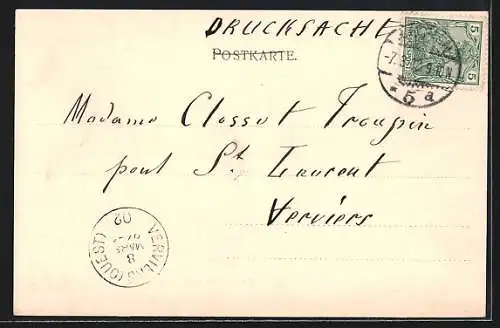 DRUCKSACHE
POSTKARTE.
5 5
-7.3. 9-10.N.
* 5 a
Madame Closset Troupin
pont St Laurent
Verviers
VERVIERS (OUEST)
8
MARS
02